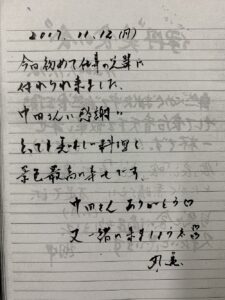 2017. 11. 12 (月)
今日初めて仕事の先輩に
伴われ来ました。
中田さんに感謝!!
とっても美味しい料理と
景色最高に幸せです。
中田さん ありがとう♡
又一緒に来ましょうネ